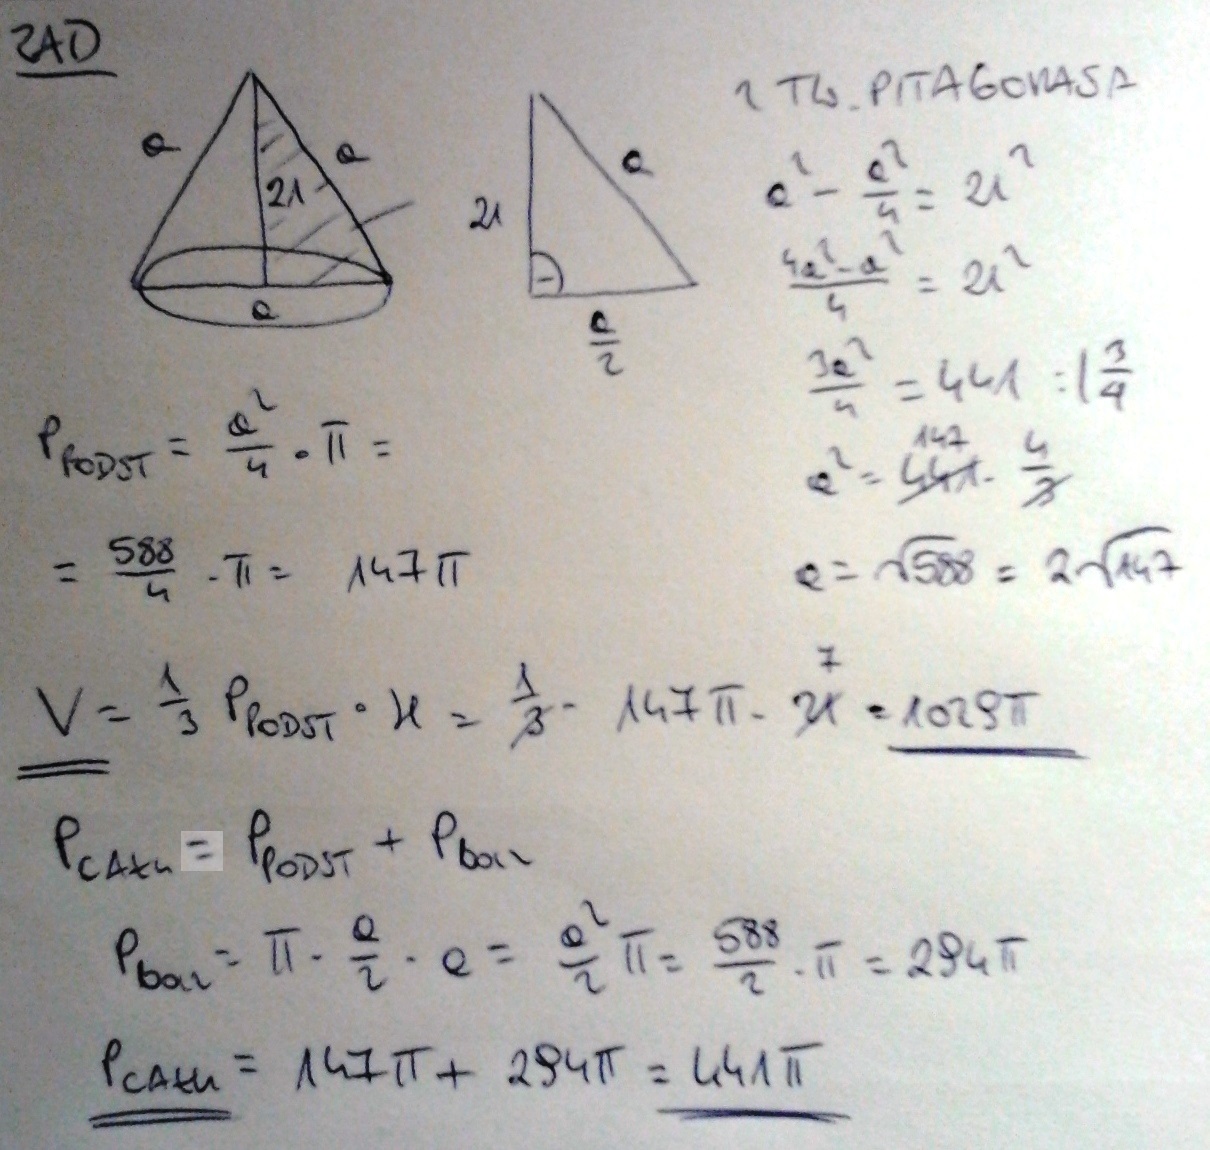 ZAD
a a
21
a
21 a
a/2
z TW. PITAGORASA
a² - a²/4 = 21²
4a² - a²/4 = 21²
3a²/4 = 441 :| 3/4
147
a² = 441 · 4/3
a = √588 = 2√147
P PODST = a²/4 · π =
= 588/4 · π = 147π
7
V = 1/3 P PODST · H = 1/3 · 147π · 21 = 1029π
P CAŁK = P PODST + P bocz
P bocz = π · a/2 · a = a²/2 π = 588/2 · π = 294π
P CAŁK = 147π + 294π = 441π